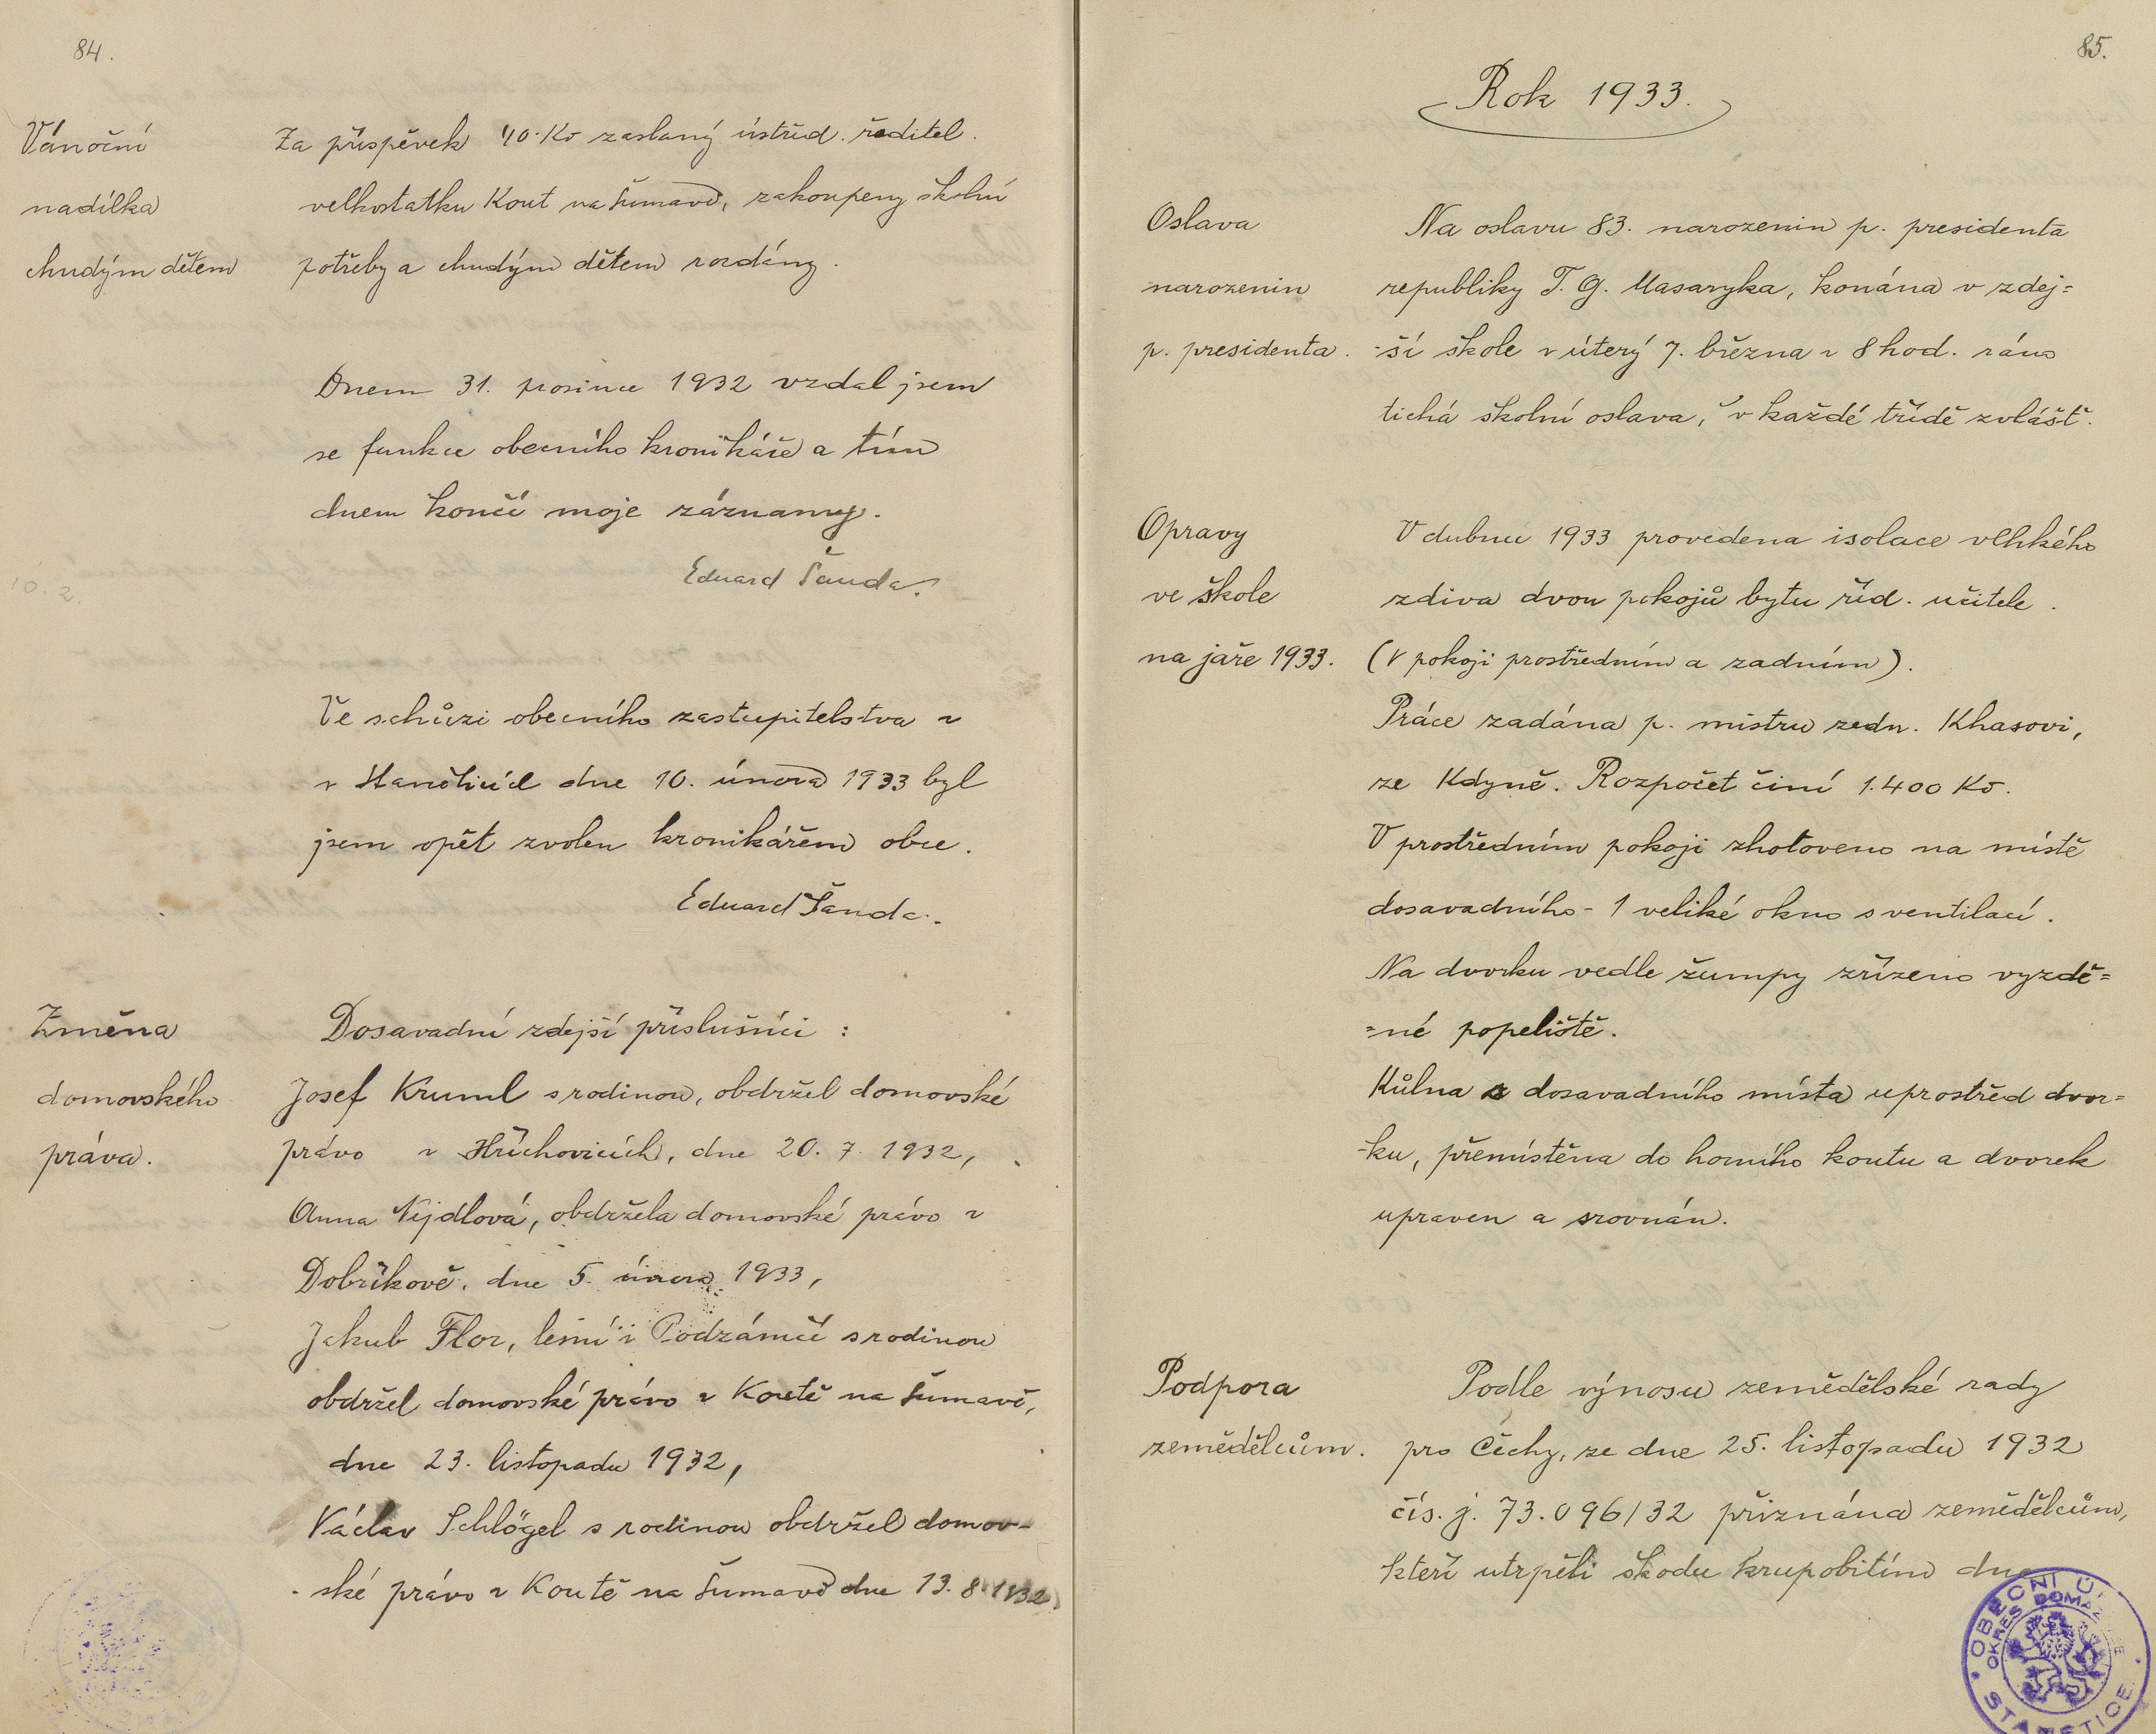 84.
Vánoční
nadílka
chudým dětem
Za příspěvek 40·Kč zaslaný ústřed. ředitel.
velkostatku Kout na Šumavě, zakoupeny školní
potřeby a chudým dětem rozdány.
Dnem 31. prosince 1932 vzdal jsem
se funkce obecního kronikáře a tím
dnem končí moje záznamy.
Eduard Šanda.
10. 2.
Ve schůzi obecního zastupitelstva v
v Staněticích dne 10. února 1933 byl
jsem opět zvolen kronikářem obce.
Eduard Šanda.
Změna
domovského
práva.
Dosavadní zdejší příslušníci :
Josef Kruml s rodinou, obdržel domovské
právo v Hříchovicích, dne 20. 7. 1932,
Anna Nejdlová, obdržela domovské právo v
Dobříkově, dne 5. února 1933,
Jakub Flor, lesní i Podzámčí s rodinou
obdržel domovské právo v Koutě na Šumavě,
dne 23. listopadu 1932,
Václav Schlögel s rodinou obdržel domov-
-ské právo v Koutě na Šumavě dne 13. 8. 1932
85.
Rok 1933.
Oslava
narozenin
p. presidenta.
Na oslavu 83. narozenin p. presidenta
republiky T. G. Masaryka, konána v zdej=
-ší škole v úterý 7. března v 8 hod. ráno
tichá školní oslava, v každé třídě zvláště.
Opravy
ve škole
na jaře 1933.
V dubnu 1933 provedena isolace vlhkého
zdiva dvou pokojů bytu říd. učitele.
(v pokoji prostředním a zadním).
Práce zadána p. mistru zedn. Khasovi,
ze Kdyně. Rozpočet činí 1.400 Kč.
V prostředním pokoji zhotoveno na místě
dosavadního - 1 veliké okno s ventilací.
Na dvorku vedle žumpy zřízeno vyzdě=
=né popeliště.
Kůlna z dosavadního místa uprostřed dvor=
-ku, přemístěna do horního koutu a dvorek
upraven a srovnán.
Podpora
zemědělcům.
Podle výnosu zemědělské rady
pro Čechy, ze dne 25. listopadu 1932
čís. j. 73.096/32 přiznána zemědělcům,
kteří utrpěli škodu krupobitím dne
OBECNÍ
OKRES